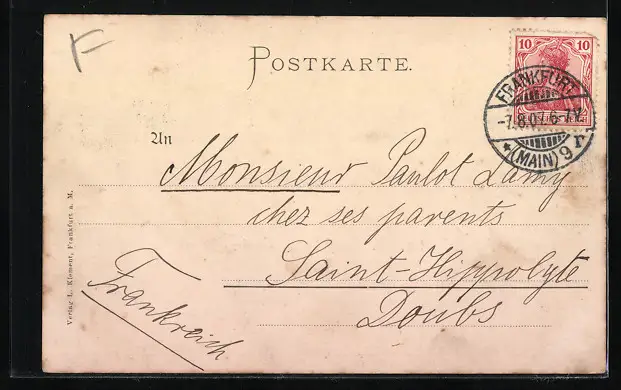 F
POSTKARTE.
10 10
FRANKFURT
-7.8.01. 6-7 V.
*(MAIN) 9 r.
An
Monsieur Paulot Lamy
chez ses parents
Saint-Hippolyte
Doubs
Frankreich
Verlag L. Klement, Frankfurt a. M.